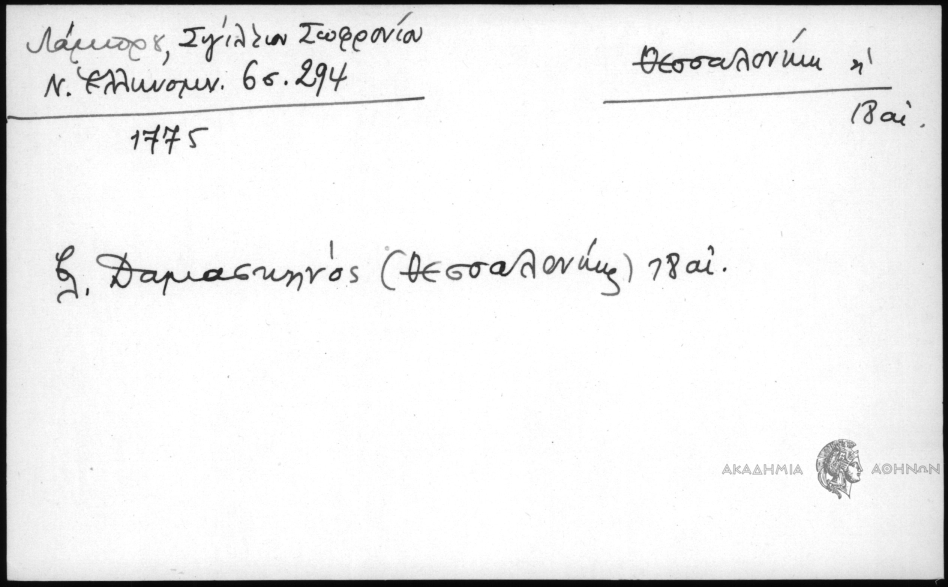 Λάμπρου, Σιγίλλιον Σωφρονίου
Ν. Ἑλληνομν. 6 σ. 294
1775
Θεσσαλονίκη η'
18 αἰ.
βλ. Δαμασκηνός (Θεσσαλονίκης) 18 αἰ.
ΑΚΑΔΗΜΙΑ ΑΘΗΝΩΝ